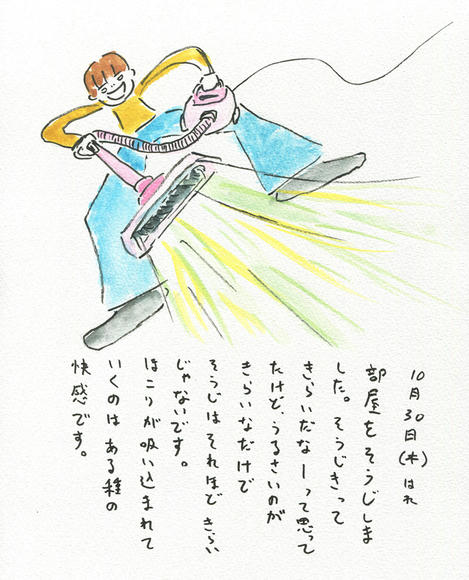 10月30日(木)はれ
部屋をそうじしま
した。そうじきって
きらいだなーって思って
たけど、うるさいのが
きらいなだけで
そうじはそれほどきらい
じゃないです。
ほこりが吸い込まれて
いくのはある種の
快感です。